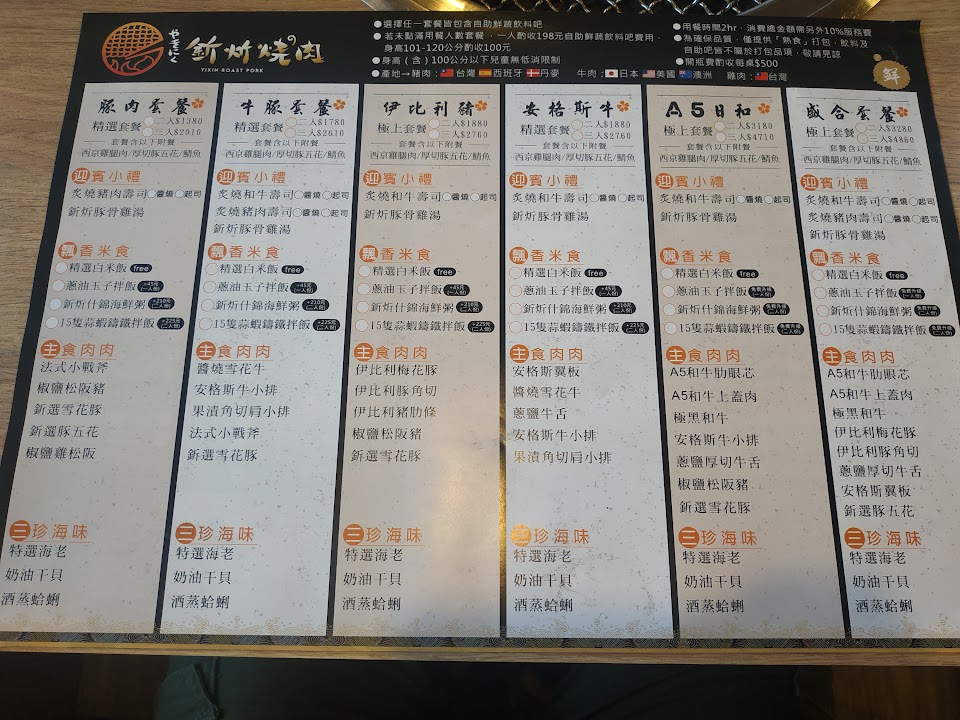 やきにく
釿炘燒肉
YIXIN ROAST PORK
●選擇任一套餐皆包含自助鮮蔬飲料吧
●若未點滿用餐人數套餐，一人酌收198元自助鮮蔬飲料吧費用，
身高101-120公分酌收100元
●身高（含）100公分以下兒童無低消限制
●產地→豬肉：台灣 西班牙 丹麥 牛肉：日本 美國 澳洲 雞肉：台灣
●用餐時間2hr，消費總金額需另外10%服務費
●為確保品質，僅提供「熟食」打包，飲料及
自助吧皆不屬於打包品項，敬請見諒
●開瓶費酌收每桌$500
鮮
豚肉套餐
精選套餐 二人$1380
三人$2010
套餐含以下附餐
西京雞腿肉/厚切豚五花/鯖魚
迎賓小禮
炙燒豬肉壽司○醬燒○起司
釿炘豚骨雞湯
飄香米食
精選白米飯 free
蔥油玉子拌飯 +45元(一人份)
釿炘什錦海鮮粥 +210元(二人份)
15隻蒜蝦鑄鐵拌飯 +225元(二人份)
主食肉肉
法式小戰斧
椒鹽松阪豬
釿選雪花豚
釿選豚五花
椒鹽雞松阪
三珍海味
特選海老
奶油干貝
酒蒸蛤蜊
牛豚套餐
精選套餐 二人$1780
三人$2610
套餐含以下附餐
西京雞腿肉/厚切豚五花/鯖魚
迎賓小禮
炙燒和牛壽司○醬燒○起司
炙燒豬肉壽司○醬燒○起司
釿炘豚骨雞湯
飄香米食
精選白米飯 free
蔥油玉子拌飯 +45元(一人份)
釿炘什錦海鮮粥 +210元(二人份)
15隻蒜蝦鑄鐵拌飯 +225元(二人份)
主食肉肉
醬燒雪花牛
安格斯牛小排
果漬角切肩小排
法式小戰斧
釿選雪花豚
三珍海味
特選海老
奶油干貝
酒蒸蛤蜊
伊比利豬
極上套餐 二人$1880
三人$2760
套餐含以下附餐
西京雞腿肉/厚切豚五花/鯖魚
迎賓小禮
炙燒和牛壽司○醬燒○起司
釿炘豚骨雞湯
飄香米食
精選白米飯 free
蔥油玉子拌飯 +45元(一人份)
釿炘什錦海鮮粥 +210元(二人份)
15隻蒜蝦鑄鐵拌飯 +225元(二人份)
主食肉肉
伊比利梅花豚
伊比利豚角切
伊比利豬肋條
椒鹽松阪豬
釿選雪花豚
三珍海味
特選海老
奶油干貝
酒蒸蛤蜊
安格斯牛
極上套餐 二人$1880
三人$2760
套餐含以下附餐
西京雞腿肉/厚切豚五花/鯖魚
迎賓小禮
炙燒和牛壽司○醬燒○起司
釿炘豚骨雞湯
飄香米食
精選白米飯 free
蔥油玉子拌飯 +45元(一人份)
釿炘什錦海鮮粥 +210元(二人份)
15隻蒜蝦鑄鐵拌飯 +225元(二人份)
主食肉肉
安格斯翼板
醬燒雪花牛
蔥鹽牛舌
安格斯牛小排
果漬角切肩小排
三珍海味
特選海老
奶油干貝
酒蒸蛤蜊
A5日和
極上套餐 二人$3180
三人$4710
套餐含以下附餐
西京雞腿肉/厚切豚五花/鯖魚
迎賓小禮
炙燒和牛壽司○醬燒○起司
釿炘豚骨雞湯
飄香米食
精選白米飯 free
蔥油玉子拌飯 免費升級(一人份)
釿炘什錦海鮮粥 免費升級(二人份)
15隻蒜蝦鑄鐵拌飯 免費升級(二人份)
主食肉肉
A5和牛肋眼芯
A5和牛上蓋肉
極黑和牛
安格斯牛小排
蔥鹽厚切牛舌
椒鹽松阪豬
釿選雪花豚
三珍海味
特選海老
奶油干貝
酒蒸蛤蜊
盛合套餐
極上套餐 二人$3280
三人$4860
套餐含以下附餐
西京雞腿肉/厚切豚五花/鯖魚
迎賓小禮
炙燒和牛壽司○醬燒○起司
炙燒豬肉壽司○醬燒○起司
釿炘豚骨雞湯
飄香米食
精選白米飯 free
蔥油玉子拌飯 免費升級(一人份)
釿炘什錦海鮮粥 免費升級(二人份)
15隻蒜蝦鑄鐵拌飯 免費升級(二人份)
主食肉肉
A5和牛肋眼芯
A5和牛上蓋肉
極黑和牛
伊比利梅花豚
伊比利豚角切
蔥鹽厚切牛舌
安格斯翼板
釿選豚五花
三珍海味
特選海老
奶油干貝
酒蒸蛤蜊